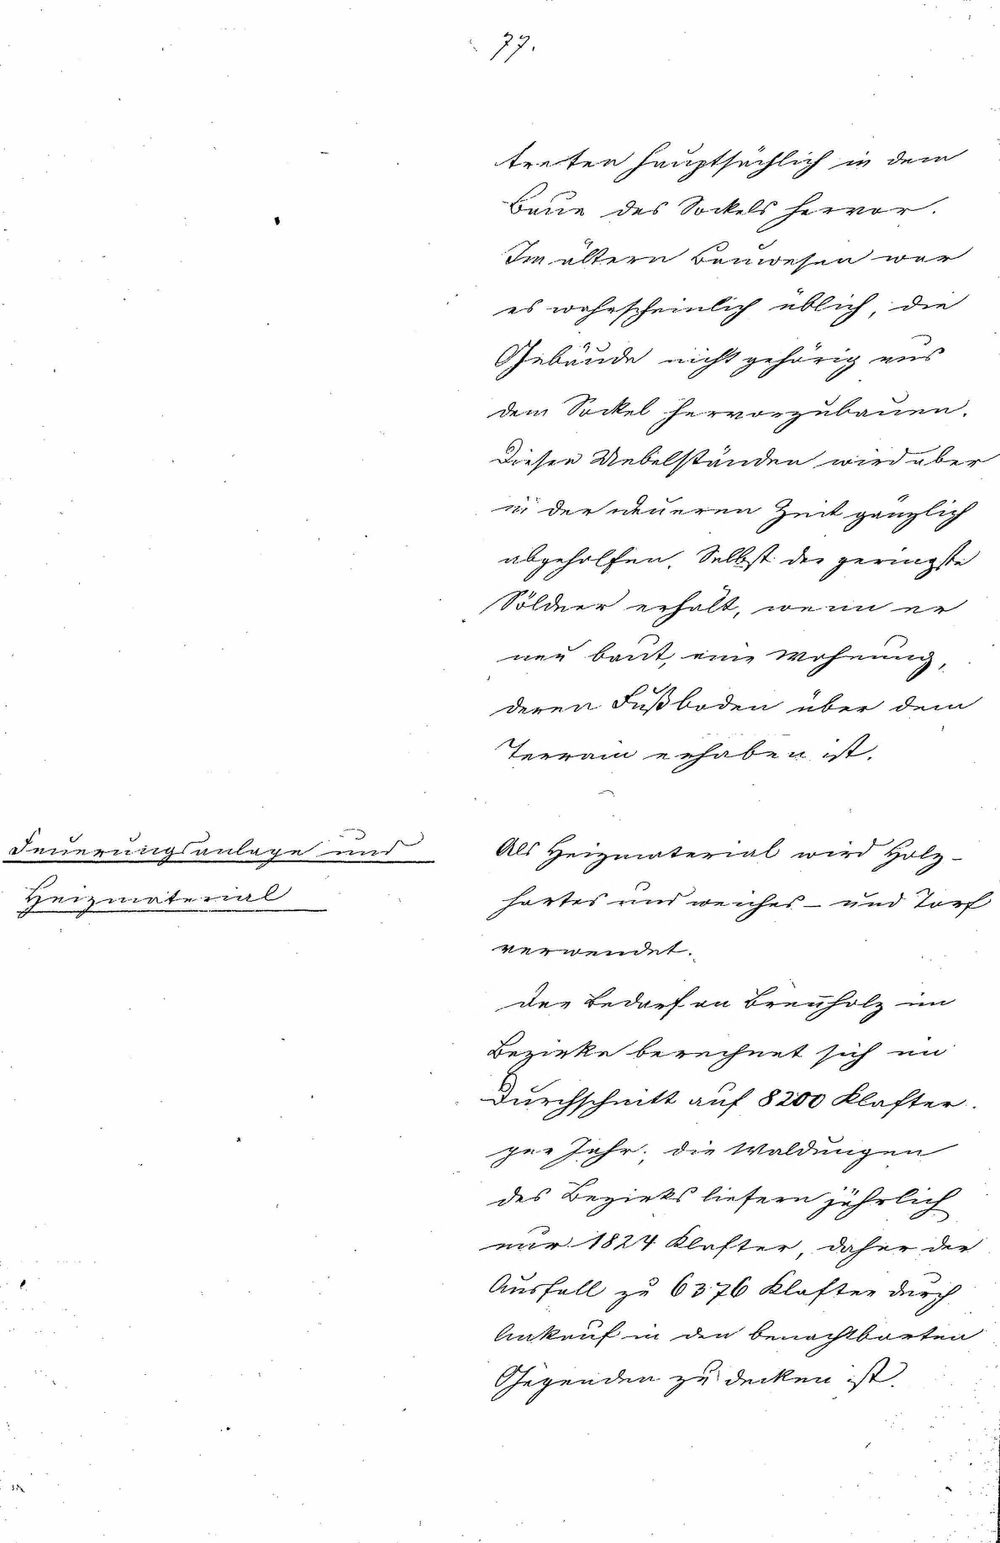 77.
treten hauptsächlich in dem
Baue des Sockels hervor.
Im ältern Bauwesen war
es wahrscheinlich üblich, die
Gebäude nicht gehörig aus
dem Sockel hervorzubauen.
Diesen Uebelständen wird aber
in der neueren Zeit gänzlich
abgeholfen. Selbst der geringste
Söldner erhält, wenn er
neu baut, eine Wohnung,
deren Fußboden über dem
Terrain erhaben ist.
Feuerungsanlage und
Heizmaterial
Als Heizmaterial wird Holz –
hartes und weiches – und Torf
verwendet.
Der Bedarf an Brennholz im
Bezirke berechnet sich im
Durchschnitt auf 8200 Klafter
per Jahr; die Waldungen
des Bezirks liefern jährlich
nur 1824 Klafter, daher der
Ausfall zu 6376 Klafter durch
Ankauf in den benachbarten
Gegenden zu decken ist.